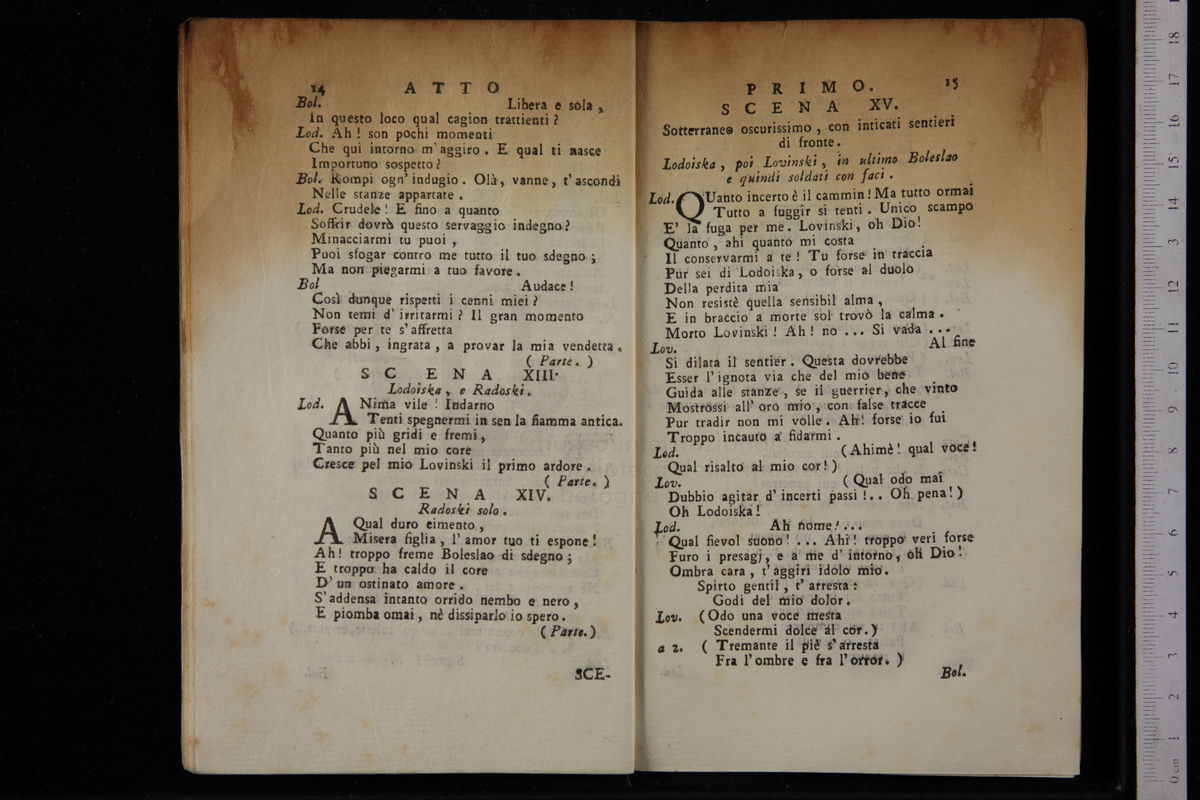 14 ATTO
Bol. Libera e sola,
In questo loco qual cagion trattienti?
Lod. Ah! son pochi momenti
Che qui intorno m'aggiro. E qual ti nasce
Importuno sospetto?
Bol. Rompi ogn'indugio. Olà, vanne, t'ascondi
Nelle stanze appartate.
Lod. Crudele! E fino a quanto
Soffrir dovrò questo servaggio indegno?
Minacciarmi tu puoi,
Puoi sfogar contro me tutto il tuo sdegno;
Ma non piegarmi a tuo favore.
Bol Audace!
Così dunque rispetti i cenni miei?
Non temi d'irritarmi? Il gran momento
Forse per te s'affretta
Che abbi, ingrata, a provar la mia vendetta.
(Parte.)
SCENA XIII.
Lodoiska, e Radoski.
Lod. ANima vile! Indarno
Tenti spegnermi in sen la fiamma antica.
Quanto più gridi e fremi,
Tanto più nel mio core
Cresce pel mio Lovinski il primo ardore.
(Parte.)
SCENA XIV.
Radoski solo.
AQual duro cimento,
Misera figlia, l'amor tuo ti espone!
Ah! troppo freme Boleslao di sdegno;
E troppo ha caldo il core
D'un ostinato amore.
S'addensa intanto orrido nembo e nero,
E piomba omai, nè dissiparlo io spero.
(Parte.)
SCE-
PRIMO. 15
SCENA XV.
Sotterraneo oscurissimo, con inticati sentieri
di fronte.
Lodoiska, poi Lovinski, in ultimo Boleslao
e quindi soldati con faci.
Lod. QUanto incerto è il cammin! Ma tutto ormai
Tutto a fuggir si tenti. Unico scampo
E' la fuga per me. Lovinski, oh Dio!
Quanto, ahi quanto mi costa
Il conservarmi a te! Tu forse in traccia
Pur sei di Lodoiska, o forse al duolo
Della perdita mia
Non resistè quella sensibil alma,
E in braccio a morte sol trovò la calma.
Morto Lovinski! Ah! no ... Si vada ...
Lov. Al fine
Si dilata il sentier. Questa dovrebbe
Esser l'ignota via che del mio bene
Guida alle stanze, se il guerrier, che vinto
Mostrossi all'oro mio, con false tracce
Pur tradir non mi volle. Ah! forse io fui
Troppo incauto a fidarmi.
Lod. (Ahimè! qual voce!
Qual risalto al mio cor!)
Lov. (Qual odo mai
Dubbio agitar d'incerti passi!.. Oh pena!)
Oh Lodoiska!
Lod. Ah nome!...
Qual fievol suono! ... Ahi! troppo veri forse
Furo i presagj, e a me d'intorno, oh Dio!
Ombra cara, t'aggiri idolo mio.
Spirto gentil, t'arresta:
Godi del mio dolor.
Lov. (Odo una voce mesta
Scendermi dolce al cor.)
a 2. (Tremante il piè s'arresta
Fra l'ombre e fra l'orror.)
Bol.
0 cm 1 2 3 4 5 6 7 8 9 10 11 12 13 14 15 16 17 18